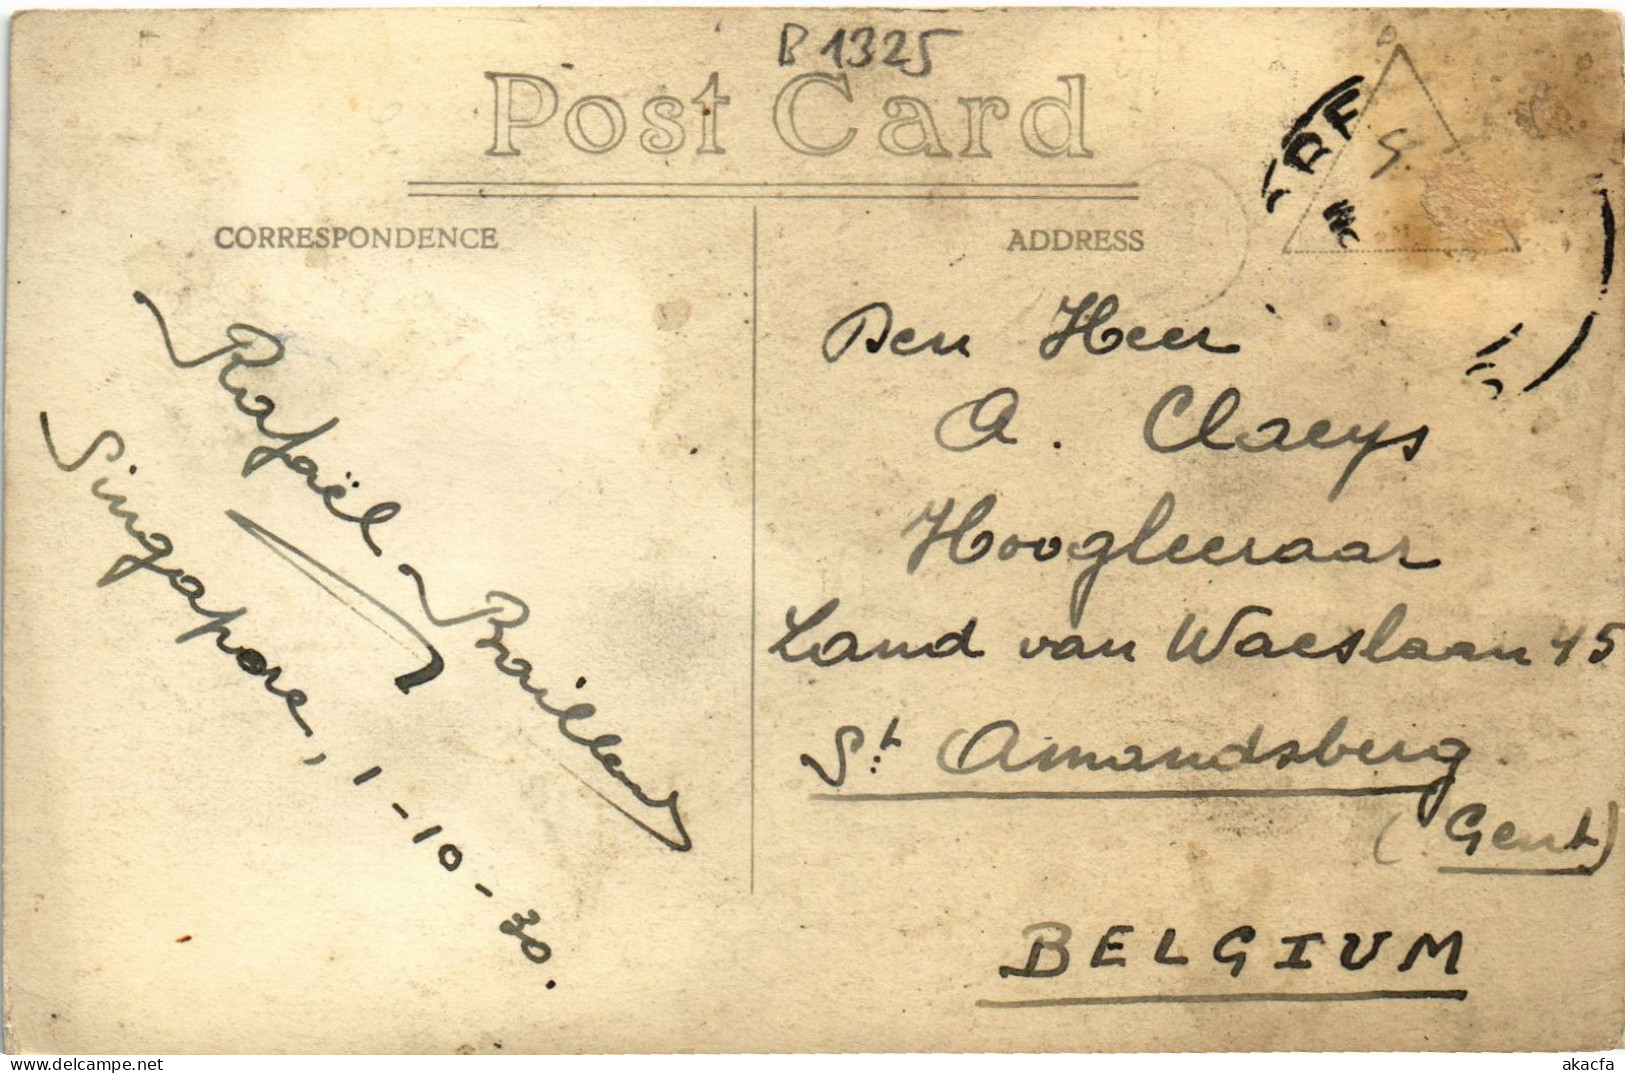 B 1325
Post Card
CORRESPONDENCE
ADDRESS
Rafaël
Singapore, 1-10-30.
Den Heer
A. Claeys
Hoogleeraar
Land van Waeslaan 45
St Amandsberg
(Gent)
BELGIUM
akacfa